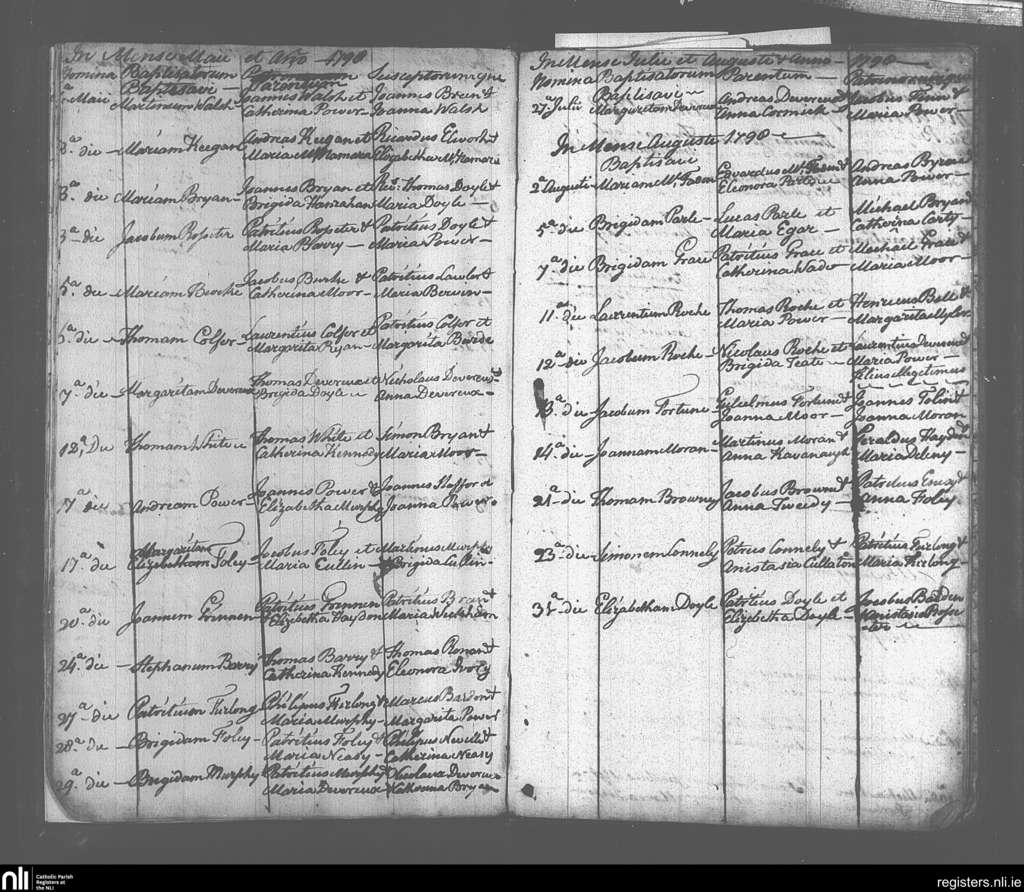 In Mense Maii et Año 1798
Nomina Baptisatorum Parentum Susceptorumque
Baptisavi — Parentum
Maii Martinum Walsh Joannes Walsh et Joannes Breen &
Catherina Power Joanna Walsh
2.a die — Mariam Keegan Andreas Keegan et Ricardus Elworth &
Maria McNamara Elizabetha McNamara
3.a die — Mariam Bryan — Joannes Bryan et Revd. Thomas Doyle &
Brigida Hanrahan Maria Doyle —
3.a die Jacobum Rosseter Patritius Rosseter & Patritius Doyle &
Maria Barry — Maria Power —
5.a die — Mariam Bourke Jacobus Burke & Patritius Lawlor &
Catherina Moor — Maria Berwin —
die — Thomam Colfer — Laurentius Colfer et Patritius Colfer et
Margarita Ryan — Margarita Burke
7.a die — Margaritam Devereux Thomas Devereux et Nicholaus Devereux &
Brigida Doyle Anna Devereux —
12.a Die Thomam White Thomas White et Simon Bryan &
Catherina Kennedy Maria Moor —
17.a die Andream Power — Joannes Power & Joannes Stafford
Elizabetha Murphy Joanna Power
Margaritam
17.a die Elizabetham Foley — Jacobus Foley et Martinus Murphy
Maria Cullen — & Brigida Cullin —
20.a die Joannem Grinnen — Patritius Grennen Patritius Brian &
Elizabetha Haydon Maria
24.a die — Stephanum Barry Thomas Barry & Thomas Ronan &
Catherina Kennedy Eleonora Ivory
27.a die Patritium Furlong Philipus Furlong & Marcus Bardon &
Maria Murphy — Margarita Power
28.a die — Brigidam Foley — Patritius Foley & Philipus Neville &
Maria Neasy — Catherina Neasy
29.a die — Brigidam Murphy Patritius Murphy & Nicolaus Devereux
Maria Devereux — Catherina Bryan
In Mense Julii et Augusti & Anno — 1798 —
Nomina Baptisatorum Parentum — Patrinorumque
Baptisavi —
27.a Julii Margaritam Devereux Andreas Devereux & Jacobus &
Anna Cormick — Maria Power —
In Mense Augusti 1798 —
Baptisavi
2.a Augusti — Mariam Edvardus & Andreas Byrne
Eleonora Parle — Anna Power —
5.a die Brigidam Parle — Lucas Parle et Michael Bryan
Maria Egar — Catherina Carty —
7.a die Brigidam Grace Patritius Grace et Michael Grace &
Catherina Wade — Maria Moor —
11.a die Laurentium Roche Thomas Roche et Henricus Bell &
Maria Power — Margarita Myler
12.a die Jacobum Roche — Nicolaus Roche et Laurentius Devereux &
Brigida Maria Power —
Filius illegitimus
13.a die Jacobum Fortune — Gulielmus Fortune & Joannes Tobin &
Joanna Moor — Joanna Moran
14.a die — Joannam Moran — Martinus Moran & Geraldus Hayden
Anna Kavanaugh Maria
21.a die Thomam Browne Jacobus Browne & Patritius &
Anna Tweedy — Anna Foley
23.a die Simonem Connely Petrus Connely & Patritius Furlong &
Anistasia Culleton Maria Furlong —
31.a die Elizabetham Doyle Patritius Doyle et Jacobus Barden
Elizabetha Doyle — Anistasia Rosse
ter —
nli
Catholic Parish
Registers at
the NLI
registers.nli.ie